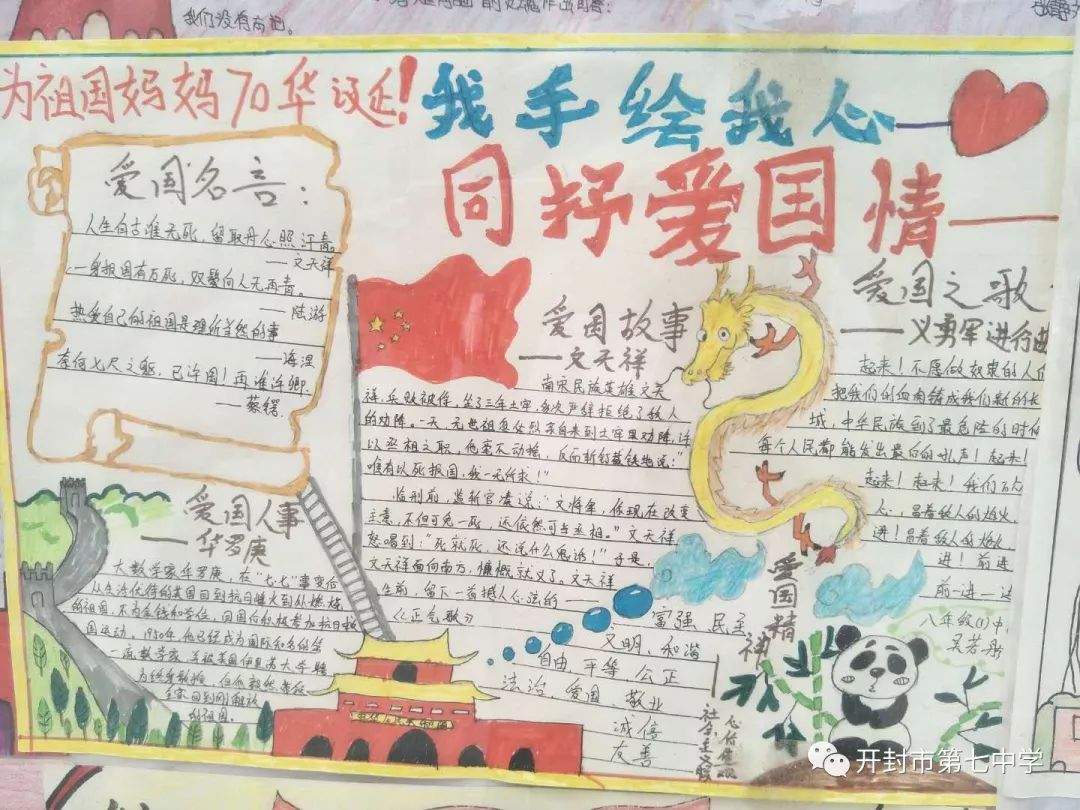 我们没有忘记。
为祖国妈妈70华诞!
我手绘我心
同抒爱国情
爱国名言:
人生自古谁无死,留取丹心照汗青。
——文天祥
一身报国有万死,双鬓向人无再青。
——陆游
热爱自己的祖国是理所当然的事
——海涅
奈何七尺之躯,已许国!再难许卿.
——蔡锷.
爱国人事
——华罗庚
大数学家华罗庚,在“七七”事变后
从生活优待的英国回到抗日烽火到处燃烧
的祖国,不为金钱和学位,回国后积极参加抗日救
国运动。1950年,他已经成为国际知名的第
一流数学家,并被美国伊里诺大学聘
为终身教授,但他毅然
回到刚解放
的祖国。
爱国故事
——文天祥
南宋民族英雄文天
祥,兵败被俘,坐了三年土牢,多次严辞拒绝了敌人
的劝降。一天,元世祖忽必烈亲自来到土牢里劝降,许
以丞相之职,他毫不动摇,反而斩钉截铁地说:“
唯有以死报国,我一无所求!”
临刑前,监斩官凑说:“文将军,你现在改变
主意,不但可免一死,还依然可当丞相。”文天祥
怒喝到:“死就死,还说什么鬼话!”于是,
文天祥面向南方,慷慨就义了,文天祥
生前,留下一首撼人心弦的——
《正气歌》
爱国之歌
——义勇军进行曲
起来!不愿做奴隶的人们
把我们的血肉铸成我们新的长
城,中华民族到了最危险的时候
每个人民都能发出最后的吼声!起来!
起来!起来!我们万众
心,冒着敌人的炮火,
进!冒着敌人的炮火
进!前进
前-进一进
富强、民主
文明、和谐
自由、平等、公正
法治、爱国、敬业
诚信
友善
社会主义核
心价值观
爱国精神
八年级(1)中
吴若彤
开封市第七中学